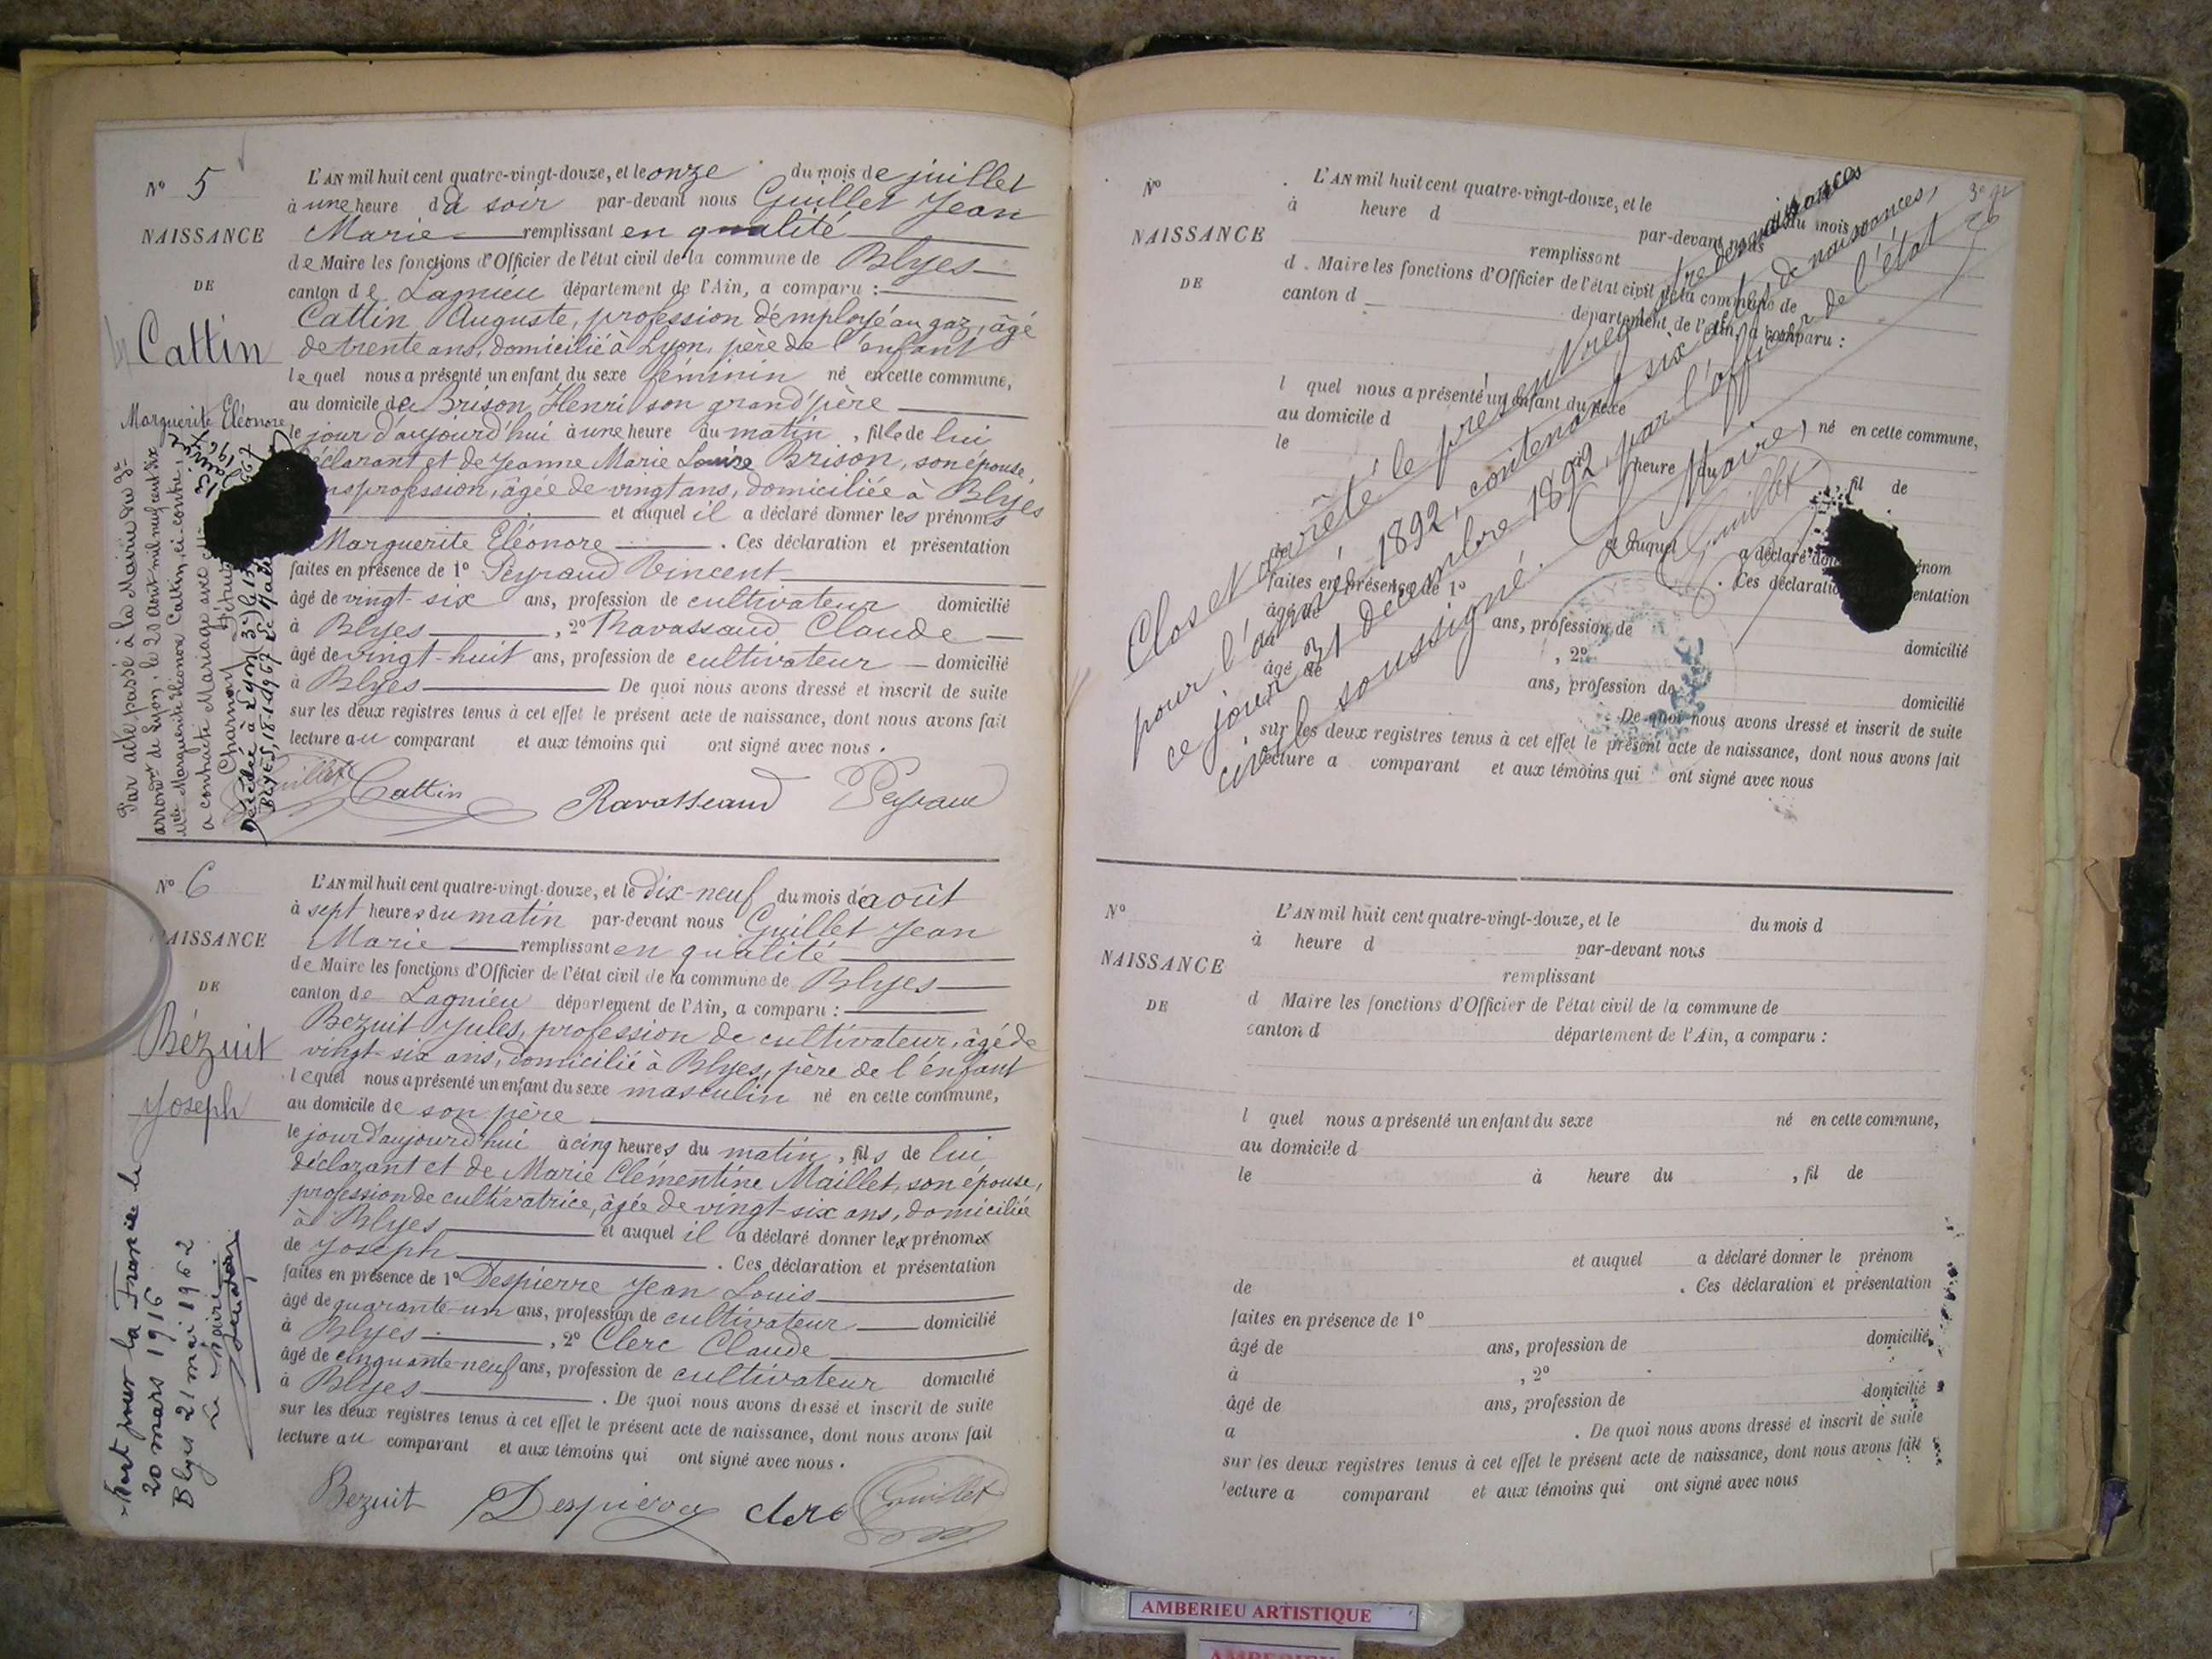 N° 5
NAISSANCE
DE
Cattin
Marguerite Eléonore
L'AN mil huit cent quatre-vingt-douze, et le onze du mois de juillet
à une heure du soir par-devant nous Guillet Jean
Marie remplissant en qualité
de Maire les fonctions d'Officier de l'état civil de la commune de Blyes
canton de Lagnieu département de l'Ain, a comparu :
Cattin Auguste, profession d'employé au gaz, âgé
de trente ans, domicilié à Lyon, père de l'enfant
lequel nous a présenté un enfant du sexe féminin né en cette commune,
au domicile de Brison Henri son grand'père
le jour d'aujourd'hui à une heure du matin, fille de lui
déclarant et de Jeanne Marie Louise Brison, son épouse
profession, âgée de vingt ans, domiciliée à Blyes
et auquel il a déclaré donner les prénoms
Marguerite Eléonore . Ces déclaration et présentation
faites en présence de 1° Peyraud Vincent
âgé de vingt-six ans, profession de cultivateur domicilié
à Blyes , 2° Ravassaud Claude
âgé de vingt-huit ans, profession de cultivateur domicilié
à Blyes De quoi nous avons dressé et inscrit de suite
sur les deux registres tenus à cet effet le présent acte de naissance, dont nous avons fait
lecture au comparant et aux témoins qui ont signé avec nous .
Guillet Cattin Ravasseaud Peyraud
Par acte passé à la Mairie du 3e
arrondt de Lyon, le 20 Août mil neuf cent dix
Mlle Marguerite Eléonore Cattin, ci-contre,
a contracté Mariage avec
Charnay
Décédée à Lyon (3e) le 13 Janvier 1967
BLYES, 18-1-1967 Le Maire
N° 6
NAISSANCE
DE
Bézuit
Joseph
L'AN mil huit cent quatre-vingt-douze, et le dix-neuf du mois d'août
à sept heures du matin par-devant nous Guillet Jean
Marie remplissant en qualité
de Maire les fonctions d'Officier de l'état civil de la commune de Blyes
canton de Lagnieu département de l'Ain, a comparu :
Bezuit Jules, profession de cultivateur, âgé de
vingt-six ans, domicilié à Blyes, père de l'enfant
lequel nous a présenté un enfant du sexe masculin né en cette commune,
au domicile de son père
le jour d'aujourd'hui à cinq heures du matin, fils de lui
déclarant et de Marie Clémentine Maillet, son épouse,
profession de cultivatrice, âgée de vingt-six ans, domiciliée
à Blyes et auquel il a déclaré donner le prénom
de Joseph . Ces déclaration et présentation
faites en présence de 1° Despierre Jean Louis
âgé de quarante-un ans, profession de cultivateur domicilié
à Blyes , 2° Clerc Claude
âgé de cinquante-neuf ans, profession de cultivateur domicilié
à Blyes . De quoi nous avons dressé et inscrit de suite
sur les deux registres tenus à cet effet le présent acte de naissance, dont nous avons fait
lecture au comparant et aux témoins qui ont signé avec nous .
Bezuit Despierre clerc Guillet
Mort pour la France le
20 mars 1916
Blyes 21 mai 1962
Le Maire
N°
NAISSANCE
DE
L'AN mil huit cent quatre-vingt-douze, et le du mois
à heure d par-devant nous
remplissant
d . Maire les fonctions d'Officier de l'état civil de la commune de
canton d département de l'Ain, a comparu :
l quel nous a présenté un enfant du sexe né en cette commune,
au domicile d
le heure du , fil de
et auquel a déclaré don énom
de . Ces déclaratio entation
faites en présence de 1°
âgé de ans, profession de domicilié
à , 2°
âgé de ans, profession de domicilié
De quoi nous avons dressé et inscrit de suite
sur les deux registres tenus à cet effet le présent acte de naissance, dont nous avons fait
lecture a comparant et aux témoins qui ont signé avec nous
Clos et arrêté le présent registre de naissances
pour l'année 1892, contenant six actes de naissances,
ce jour 31 décembre 1892, par l'officier de l'état
civil soussigné. Le Maire,
Guillet
N°
NAISSANCE
DE
L'AN mil huit cent quatre-vingt-douze, et le du mois d
à heure d par-devant nous
remplissant
d Maire les fonctions d'Officier de l'état civil de la commune de
canton d département de l'Ain, a comparu :
l quel nous a présenté un enfant du sexe né en cette commune,
au domicile d
le à heure du , fil de
et auquel a déclaré donner le prénom
de . Ces déclaration et présentation
faites en présence de 1°
âgé de ans, profession de domicilié
à , 2°
âgé de ans, profession de domicilié
a . De quoi nous avons dressé et inscrit de suite
sur les deux registres tenus à cet effet le présent acte de naissance, dont nous avons fait
lecture a comparant et aux témoins qui ont signé avec nous
AMBERIEU ARTISTIQUE
AMBERIEU